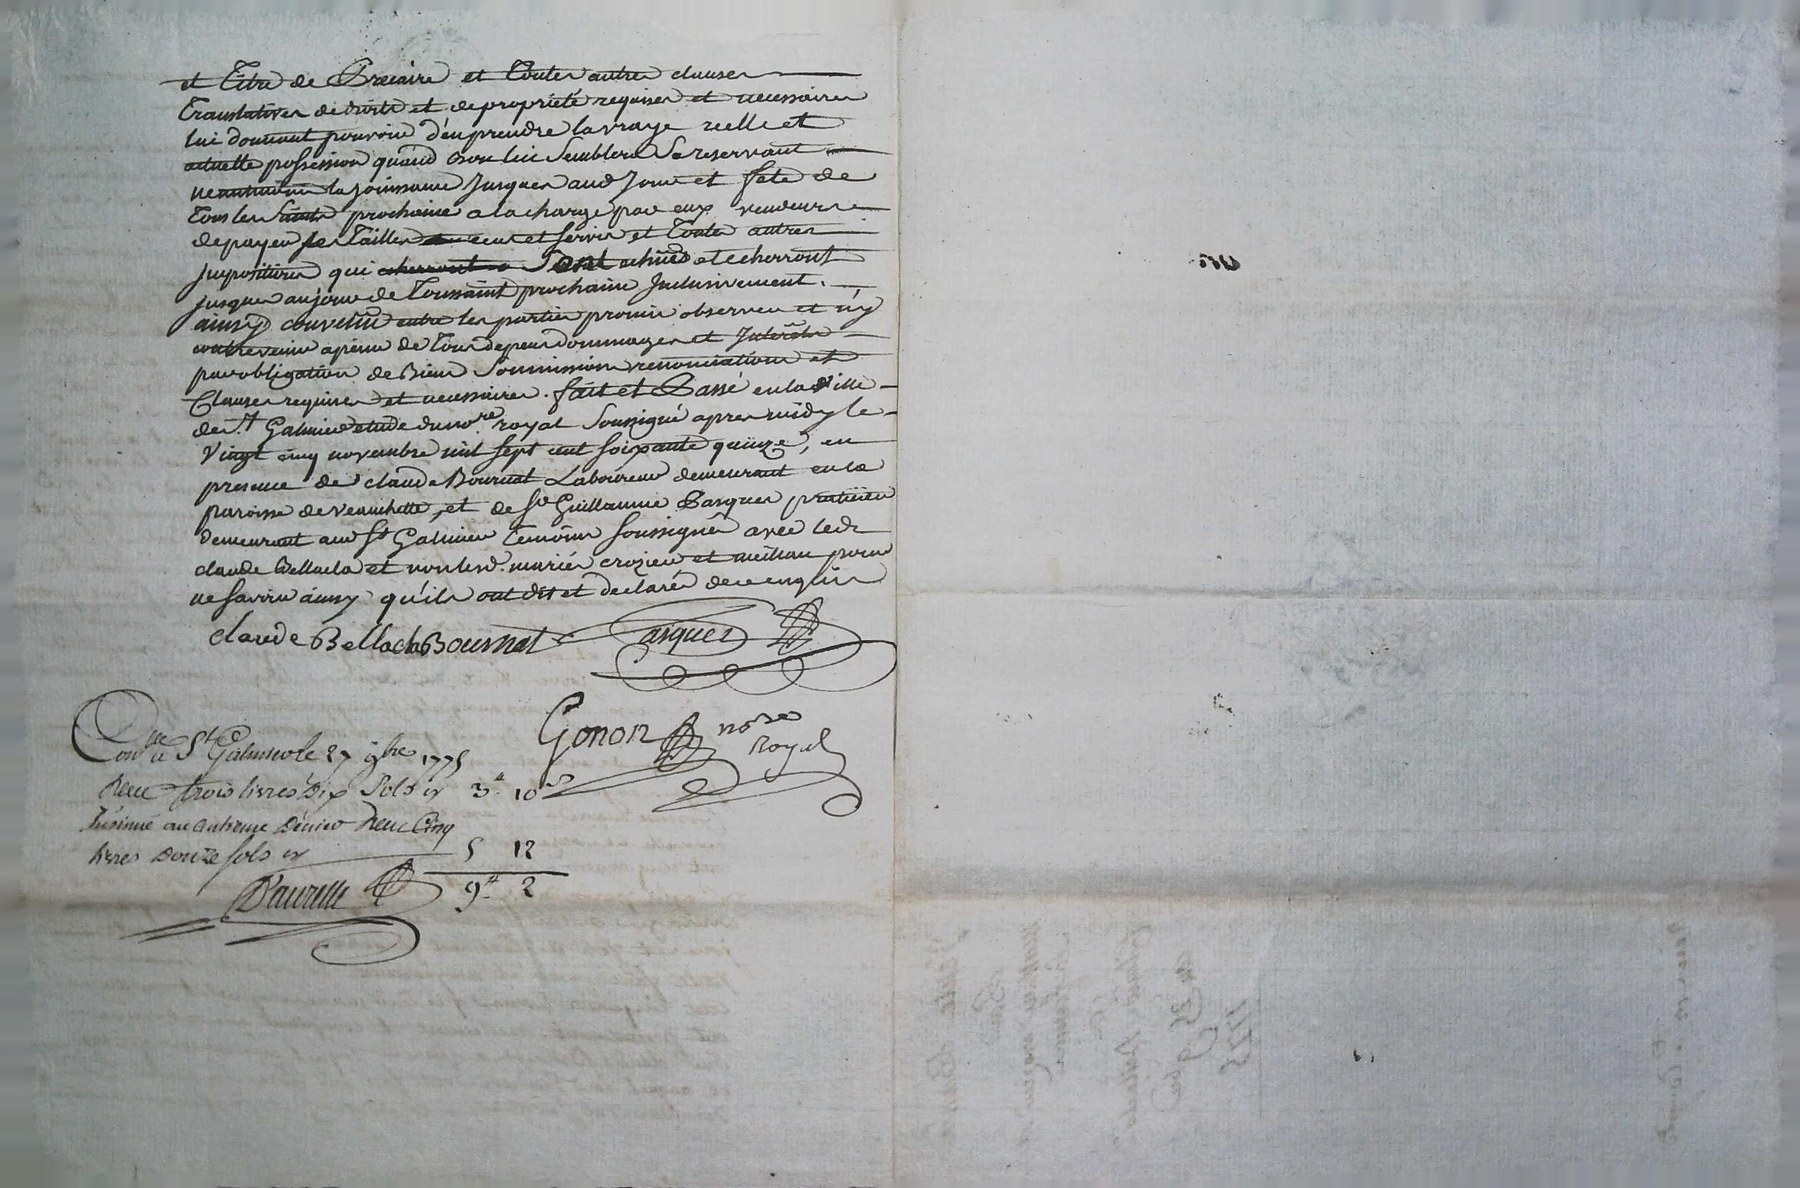 et Titre de Precaire et Toutes autres clauses
Translatives de droits et de propriété requises et necessaires
lui donnant pouvoir d'en prendre la vraye reelle et
actuelle possession quand bon lui semblera Se reservant
neantmoins la joüissance jusques aud. jour et fete de
Tous les Saints prochaine a la charge par eux vendeurs
de payer les Tailles cens et servis et Toutes autres
jmpositions qui Sont échües et echerront
jusques au jour de Toussaint prochaine jnclusivement.
ainsy convenu entre les parties promis observer et n'y
contrevenir a peine de Tous depens dommages et Interêts
par obligation de Biens Soumissions renonciations et
Clauses requises et necessaires. fait et Passé en la ville
de St Galmier etude du nore royal soussigné apres midy le
vingt cinq novembre mil sept cent soixante quinze, en
presence de claude Bournat Laboureur demeurant en la
paroisse de veauchette, et de Sr Guillaume Pasques praticien
demeurant aud St Galmier Temoins soussignés avec led.
claude Bellacla et non lesd. mariés crozier et meillau pour
ne savoir ainsy qu'ils ont dit et declarés de ce enquis
claude Bellacla Bournat Pasques
Gonon nore
Royal
Conlé a St Galmier le 27 9bre 1775
Reçu trois livres Dix Sols cy 3# 10s
Insinué au Centieme Denier Reçu Cinq
livres Douze sols cy 5 12
9# 2
D'aurelle